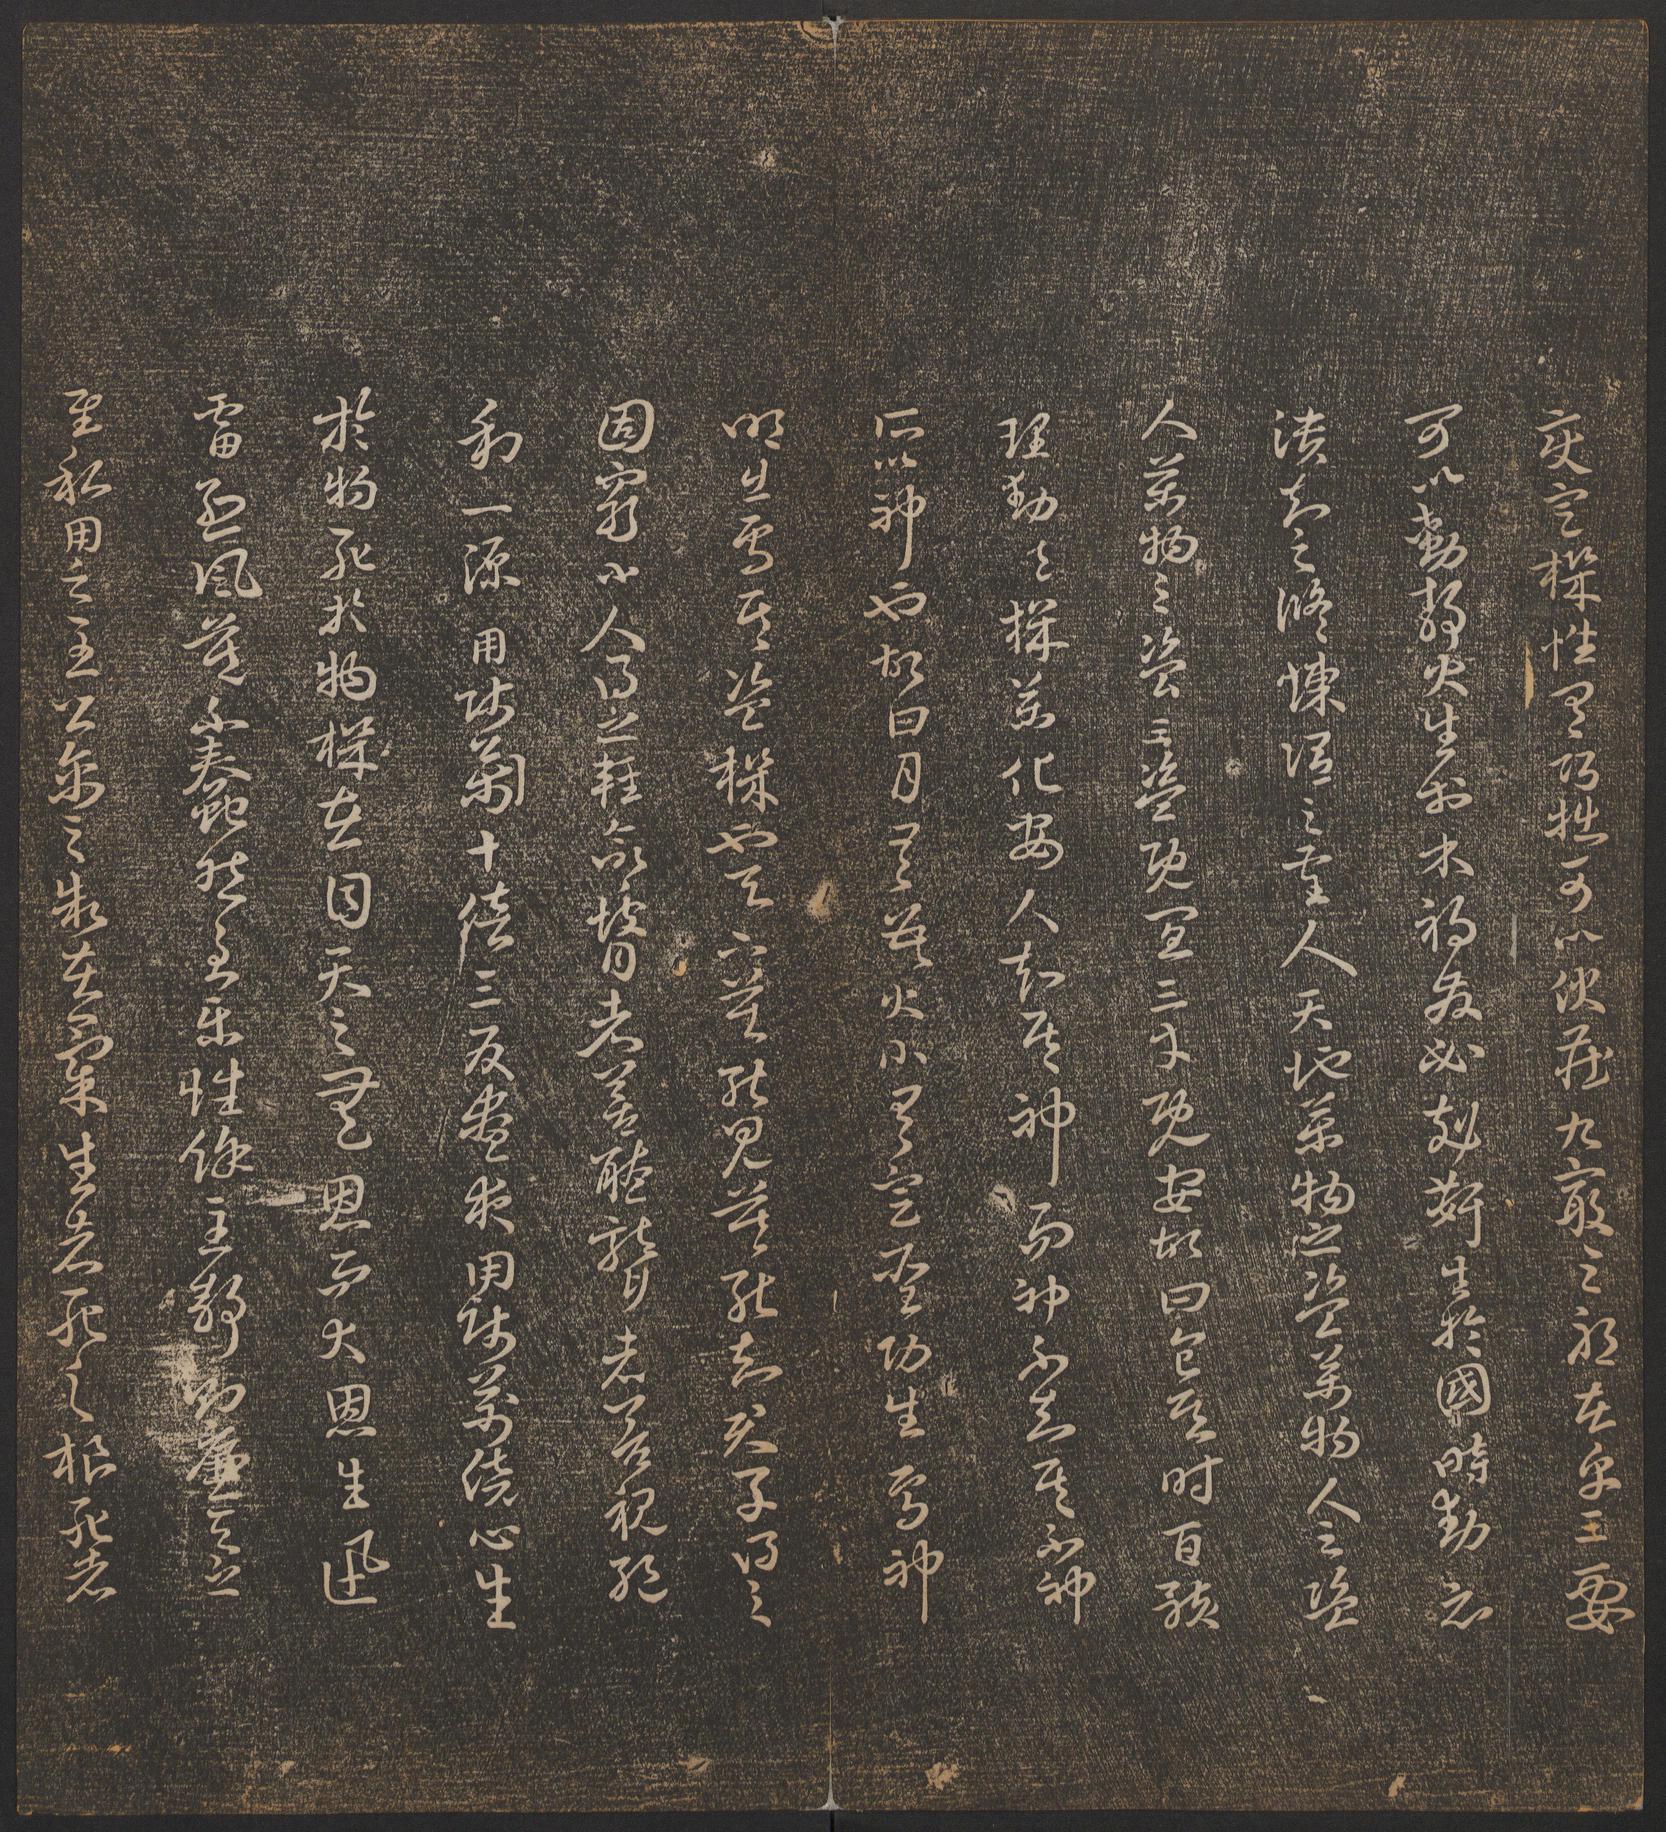 變定機性有巧拙可以伏藏九竅之邪在乎三要
可以動靜火生於木禍發必剋姧生於國時動必
潰知之修煉謂之聖人天地萬物之盜萬物人之盜
人萬物之盜三盜既宜三才既安故曰食其時百骸
理動之機萬化安人知其神而神不知其不神
所以神也故日月有數大小有定聖功生焉神
明出焉其盜機也天下莫能見莫能知君子得之
固窮小人得之輕命瞽者善聽聾者善視絕
利一源用師萬十倍三反晝夜用師萬倍心生
於物死於物機在目天之無恩而大恩生迅
雷烈風莫不蠢然至樂性餘至靜則廉天之
至私用之至公禽之制在氣生者死之根死者